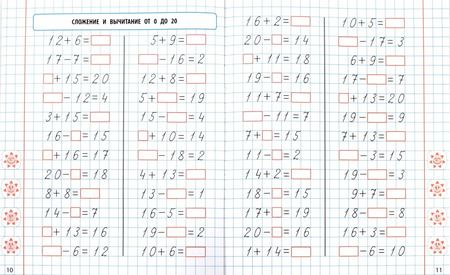 СЛОЖЕНИЕ И ВЫЧИТАНИЕ ОТ 0 ДО 20
12+6=□
17-7=□
□+15=20
□-12=4
3+15=□
16-□=15
□+16=17
20-□=18
8+8=□
14-□=7
13+□=16
□-6=12
5+9=□
□-16=2
12+8=□
5+□=19
15-□=4
□+10=14
□-18=2
4+13=□
13-□=1
16-5=□
19-□=2
10+6=□
10
16+2=□
20-□=14
□+11=18
19-□=16
11+7=□
□-11=7
7+□=15
11-□=2
14+2=□
18-□=15
17+□=19
20-□=16
1+14=□
10+5=□
□-17=3
6+9=□
17-□=7
□+13=20
19-□=9
7+13=□
□-3=15
19-□=1
9+7=□
18-□=8
16+□=19
□-6=10
11